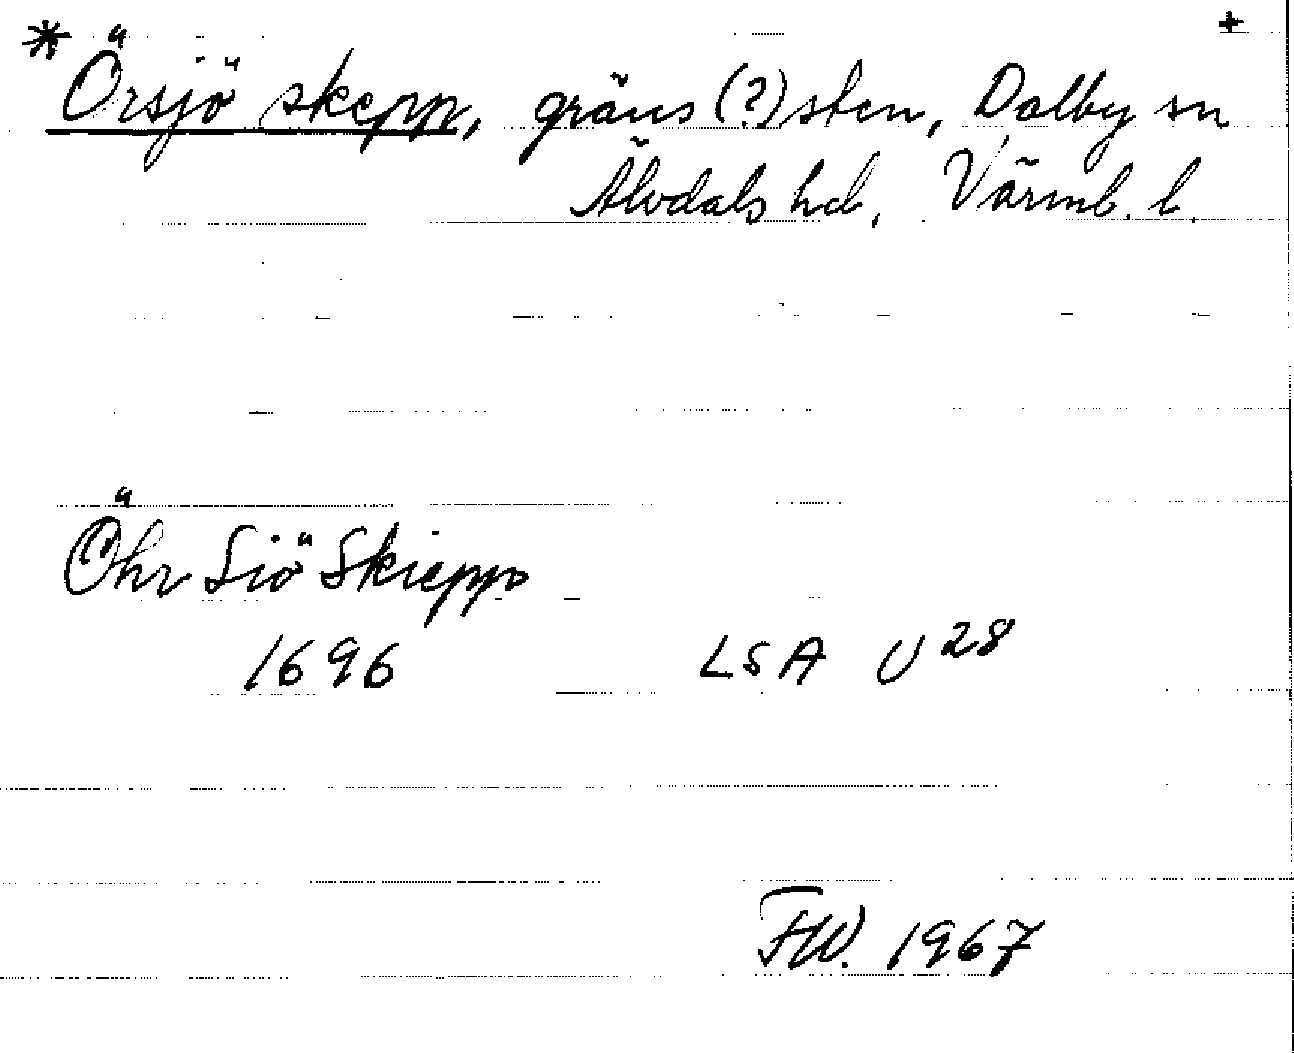 * Örsjö skepp, gräns(?)sten, Dalby sn +
Älvdals hd, Värml. l.
Öhr Siö Skiepp
1696 LSA U 28
FW. 1967